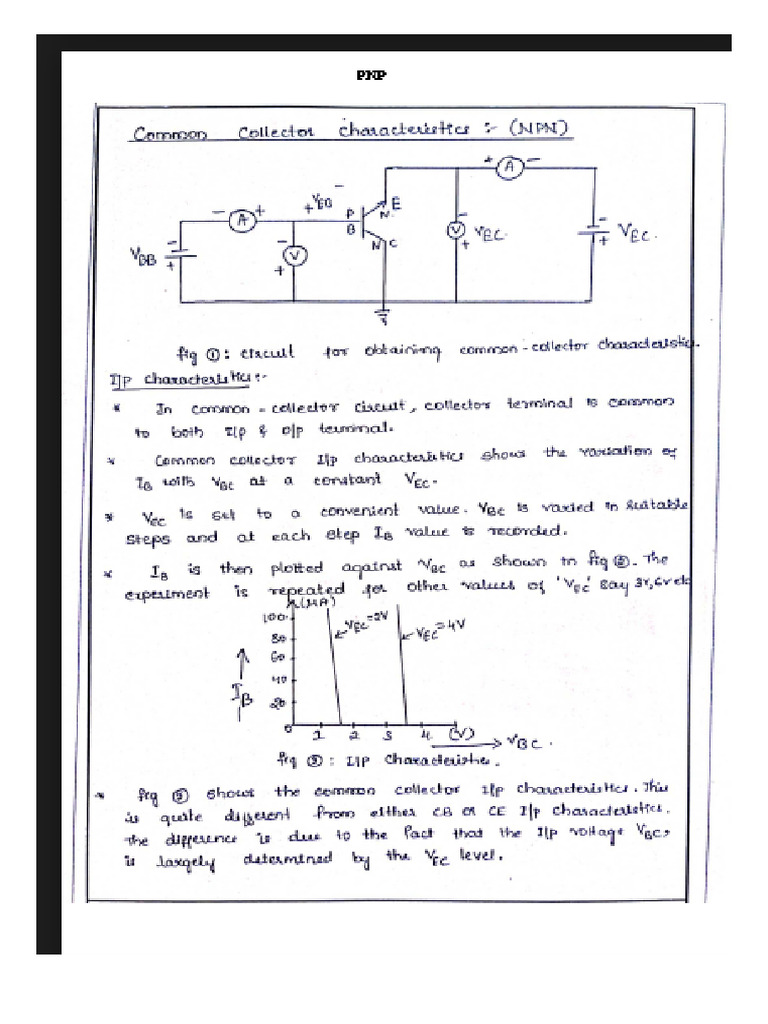 PNP
Common Collector characteristics :- (NPN)
+ A -
- A +
+ VEB -
P
B
N
E
N
C
VBB
- +
- V +
- V + VEC.
- + VEC.
fig ①: circuit for obtaining common-collector characteristics.
I/p characteristics:-
* In common-collector circuit, collector terminal is common
to both I/p & O/p terminal.
* Common collector I/p characteristics shows the variation of
IB with VBC at a constant VEC.
* VEC is set to a convenient value. VBC is varied in suitable
steps and at each step IB value is recorded.
* IB is then plotted against VBC as shown in fig ②. The
experiment is repeated for other values of 'VEC' say 3V, 6V etc
(μA)
100
80
60
40
20
0
IB
VEC=2V
VEC=4V
1 2 3 4 (V) VBC.
fig ②: I/P Characteristic.
* fig ② shows the common collector I/p characteristics. This
is quite different from either CB or CE I/p characteristics.
The difference is due to the fact that the I/p voltage VBC,
is largely determined by the VEC level.